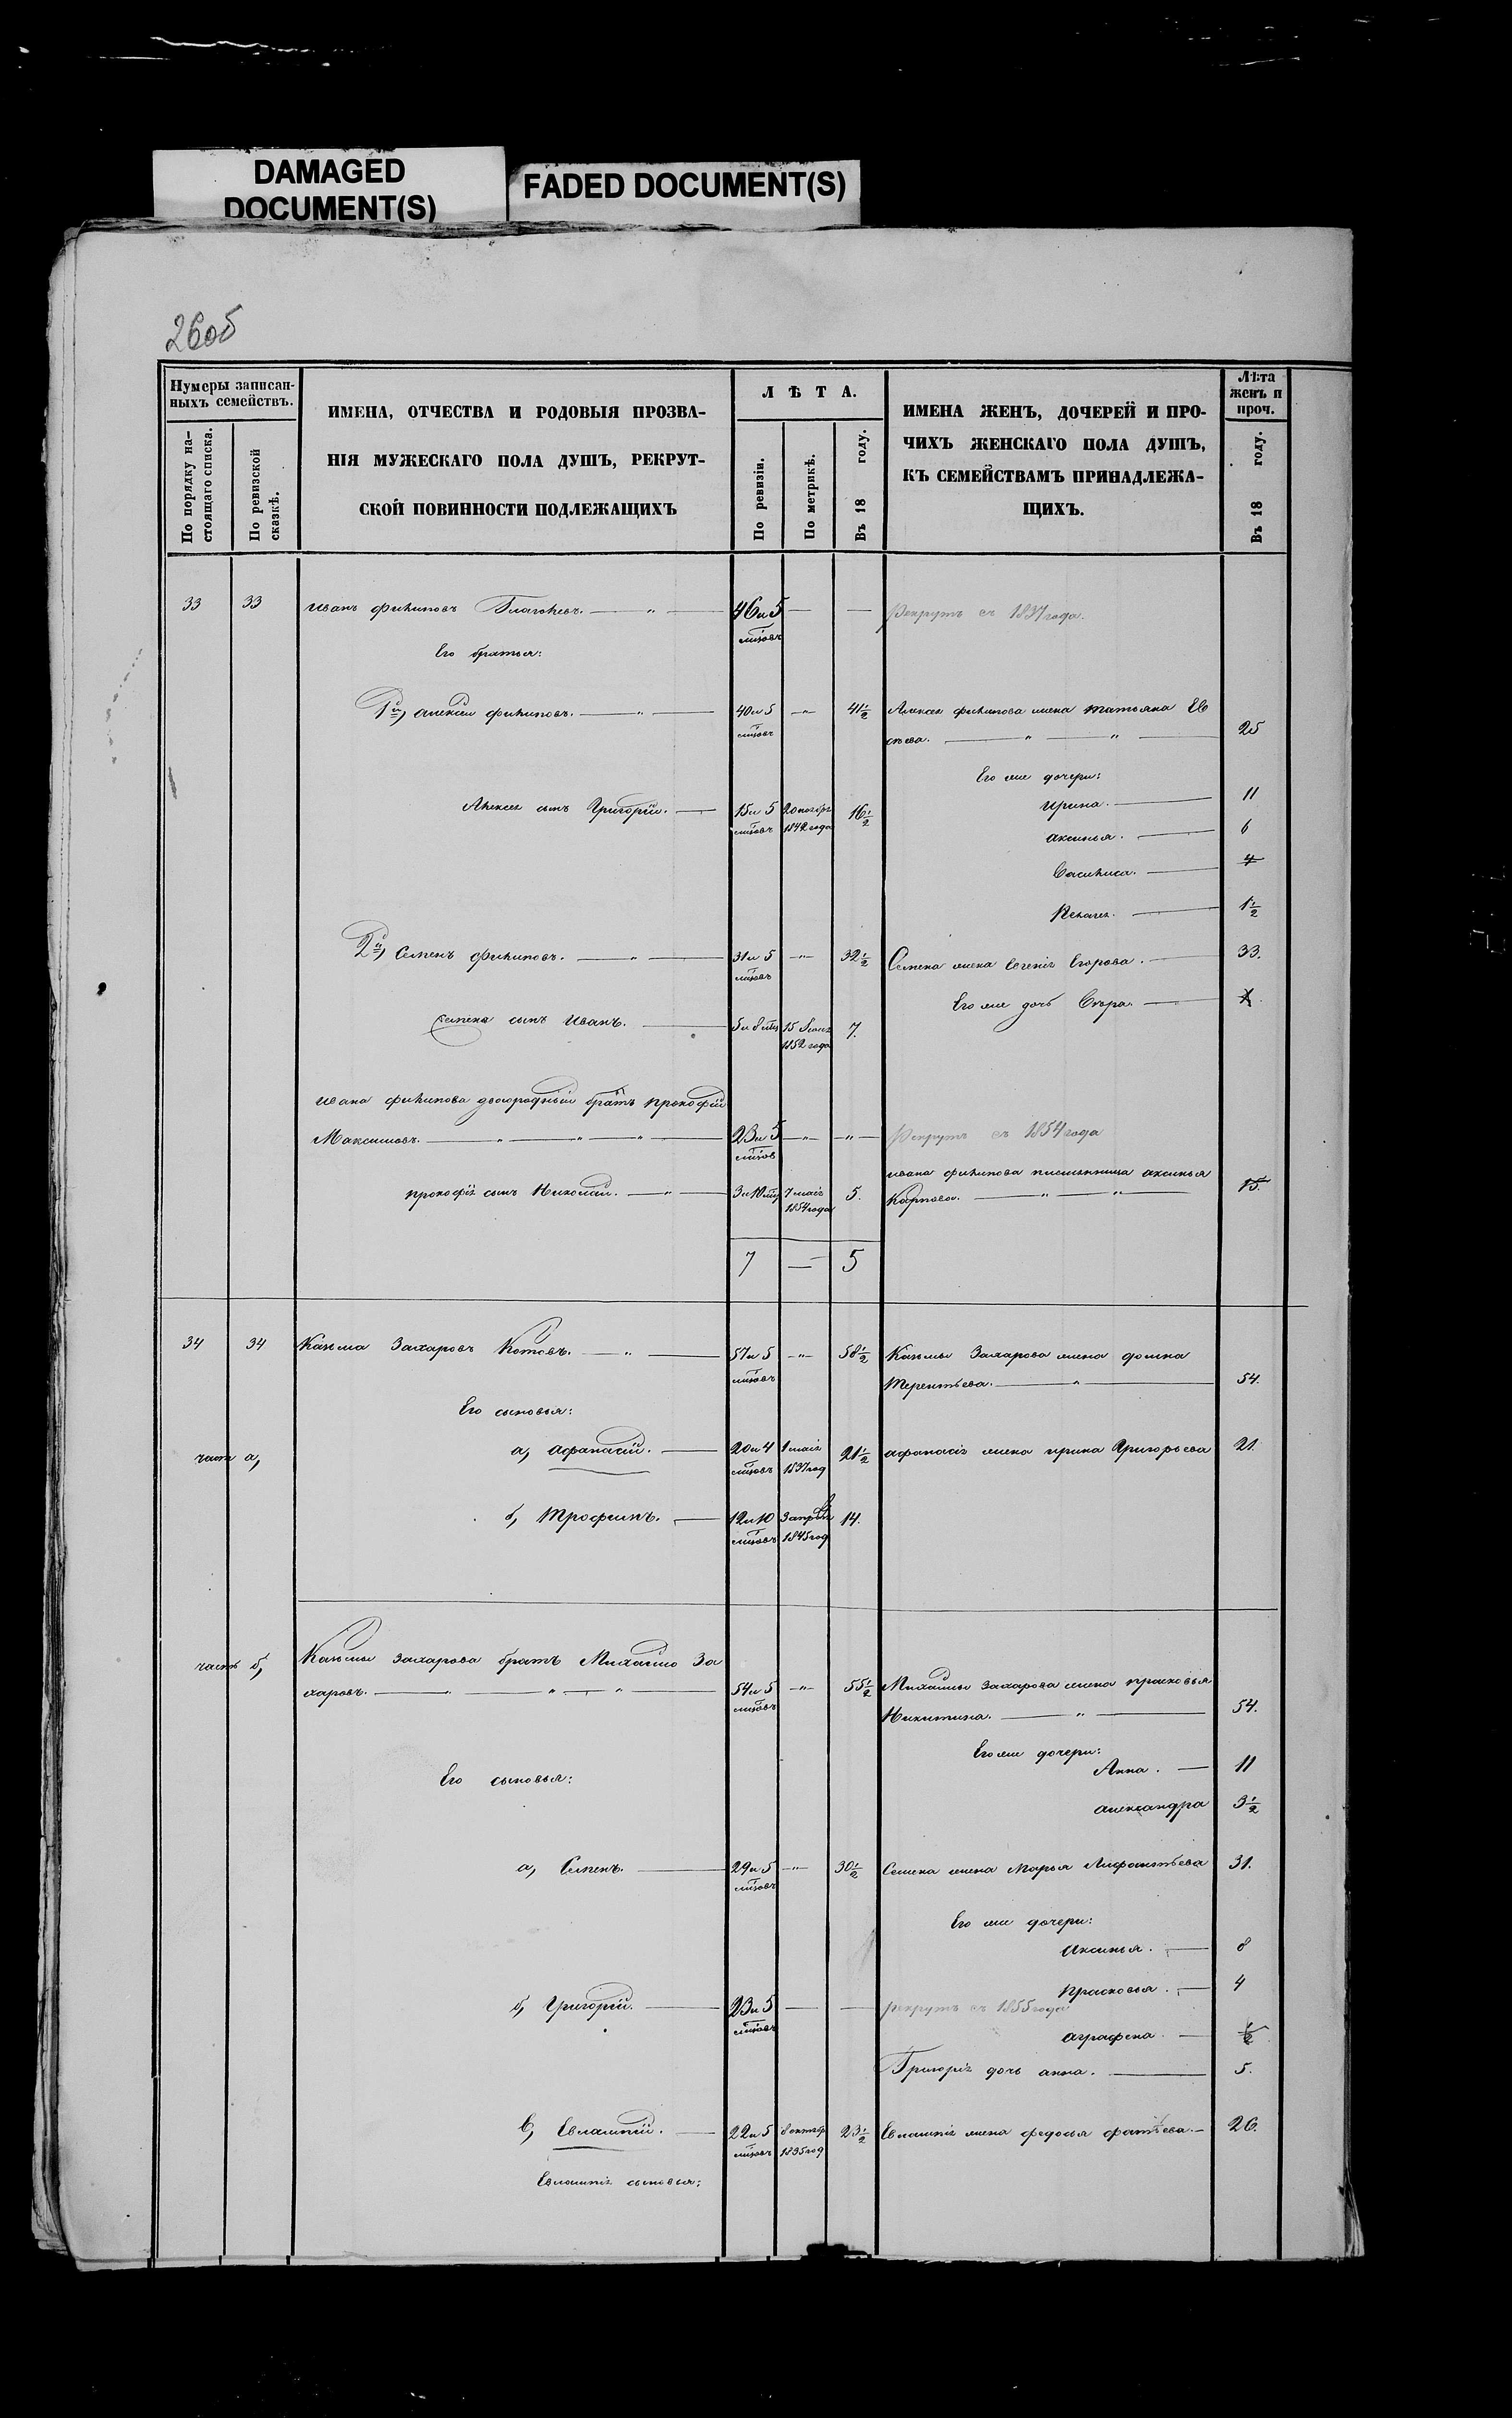 DAMAGED
DOCUMENT(S)
FADED DOCUMENT(S)
26об
Нумеры записан-
ныхъ семействъ.
По порядку на-
стоящаго списка.
По ревизской
сказкѣ.
ИМЕНА, ОТЧЕСТВА И РОДОВЫЯ ПРОЗВА-
НІЯ МУЖЕСКАГО ПОЛА ДУШЪ, РЕКРУТ-
СКОЙ ПОВИННОСТИ ПОДЛЕЖАЩИХЪ
ЛѢТА.
По ревизіи.
По метрикѣ.
Въ 18 году.
ИМЕНА ЖЕНЪ, ДОЧЕРЕЙ И ПРО-
ЧИХЪ ЖЕНСКАГО ПОЛА ДУШЪ,
КЪ СЕМЕЙСТВАМЪ ПРИНАДЛЕЖА-
ЩИХЪ.
Лѣта
женъ и
проч.
Въ 18 году.
33 33 Иванъ Филиповъ 46 и 5 — — Рекрутъ съ 1837 года.
мѣсовъ
Его братья:
1й, Алексѣй Филиповъ. — " — 40 и 5 — " 41½ Алексея Филипова жена Татьяна Ев
мѣсовъ
сѣева. — " — " — 25
Его же дочери:
Алексея сынъ Григорій. — 15 и 5 20 ноября 16½ Ирина. — 11
мѣсовъ 1842 года
Аксинья. — 6
Василиса. — 4
Пелагея. — 1½
2й, Семенъ Филиповъ. — " — 31 и 5 — " 32½ Семена жена Евгенія Егорова. — 33.
мѣсовъ
Его же дочь Вѣра. —
Семена сынъ Иванъ. — 5 и 8 мѣц 15 7.
1852 года
Ивана Филипова двоюродный братъ Прокофій
Максимовъ. — " — " — " — 23 и 5 — " — " — Рекрутъ съ 1854 года
мѣсов
Ивана Филипова племянница Аксинья
Прокофія сынъ Николай. — " — 3 и 10 мц 7 маія 5. Карпова. — " — " — 15.
1854 года
7 — 5
34 34 Казьма Захаровъ Котовъ. — " — 57 и 5 — " 58½ Казьмы Захарова жена Домна
мѣсовъ
Терентьева. — " — 54.
Его сыновья:
часть а, а, Афанасій. — 20 и 4 1 маія 21½ Афанасія жена Ирина Григорьева 21.
мѣсовъ 1837 год
б, Трофимъ. — 12 и 10 3 апрѣля 14.
мѣсовъ 1845 год
часть б, Казьмы Захарова братъ Михайло За
харовъ. — " — " — " — 54 и 5 — " 55½ Михайлы Захарова жена Прасковья
мѣсовъ
Никитина. — " — 54.
Его же дочери:
Его сыновья: Анна. — 11
Александра 3½
а, Семенъ. — 29 и 5 — " 30½ Семена жена Марья 31.
мѣсовъ
Его же дочери:
Аксинья. — 8
Прасковья. — 4
б, Григорій. — 23 и 5 — — рекрутъ съ 1855 года
мѣсовъ
Аграфена. — ½
Григорія дочь Анна. — 5.
в, Евлампій. — 22 и 5 8 октябр 23½ Евлампія жена Федосья Фатѣева. — 26.
мѣсовъ 1835 год
Евлампія сыновья: